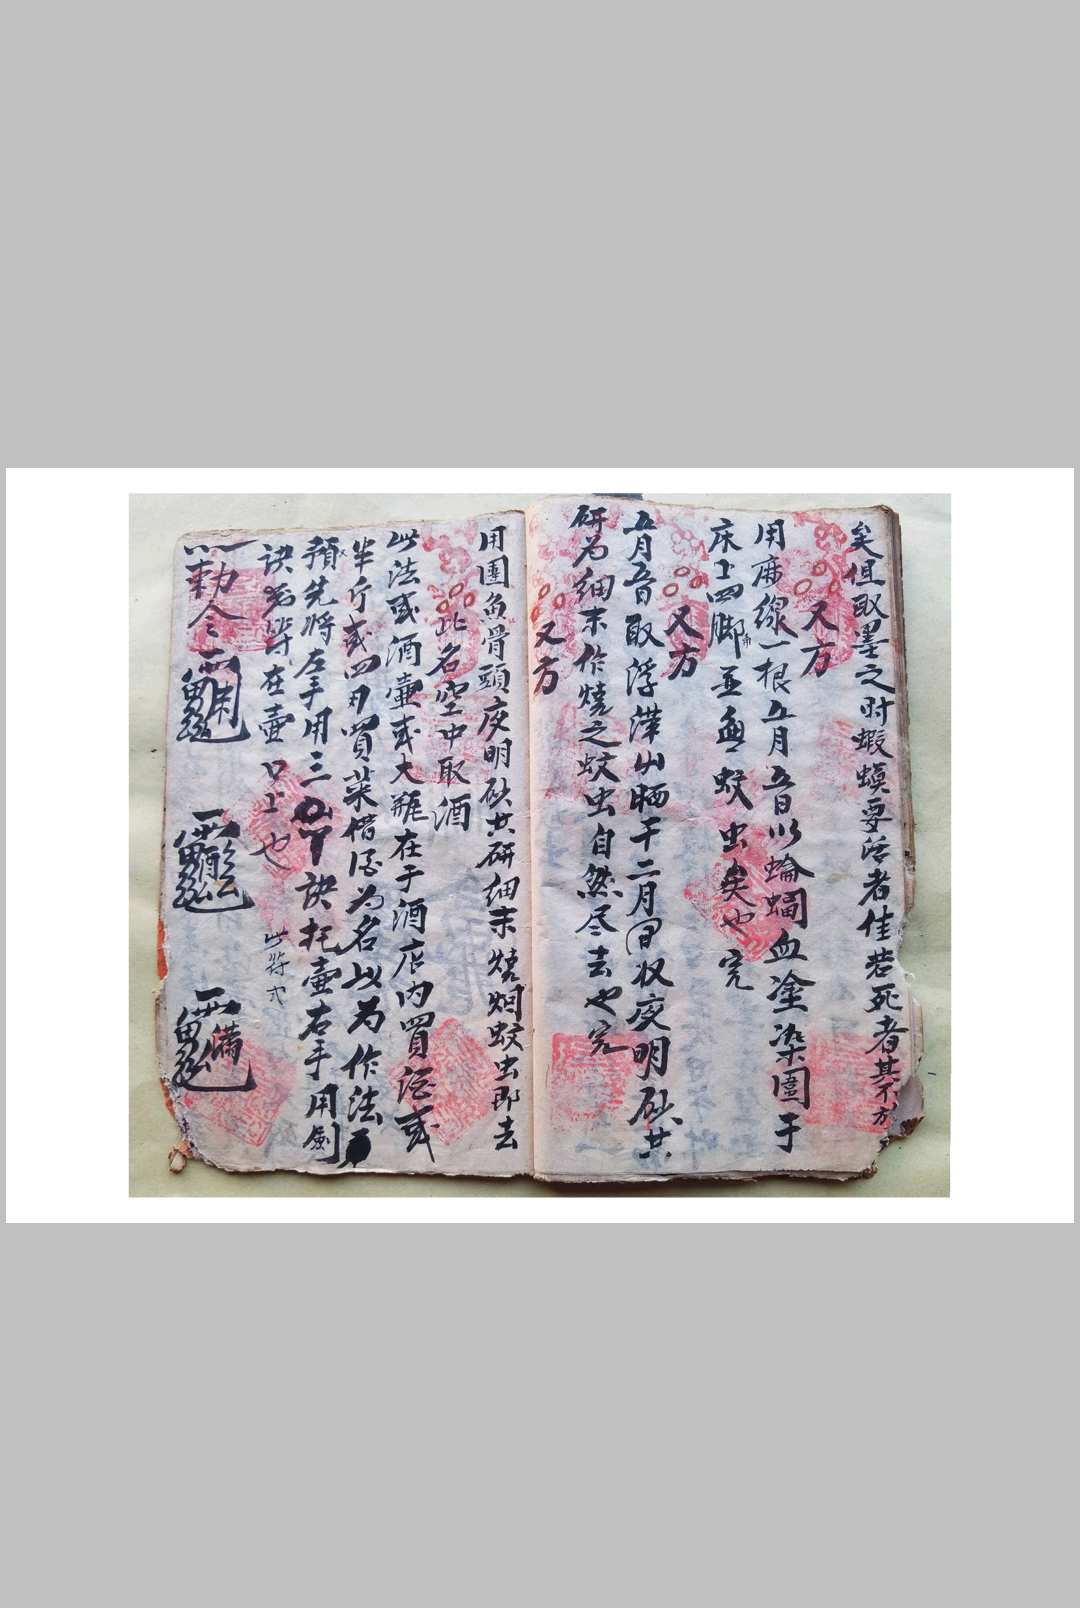 矣但取墨之时蝦蟆要活者佳若死者其不方
又方
用麻線一根五月五日以蝙蝠血塗染圍于
床上四脚並無蚊虫矣也完
又方
五月五日取浮萍晒干二月收夜明砂共
研为細末作燒之蚊虫自然尽去也完
又方
用團魚骨頭夜明砂共研細末燒烟蚊虫即去
此名空中取酒
此法或酒壷或大瓶在于酒店内買酒或
半斤或四刃買菜借名为名以为作法
預先將左手用三訣托壷右手用劍
訣在壷口上也
此符式
勅令